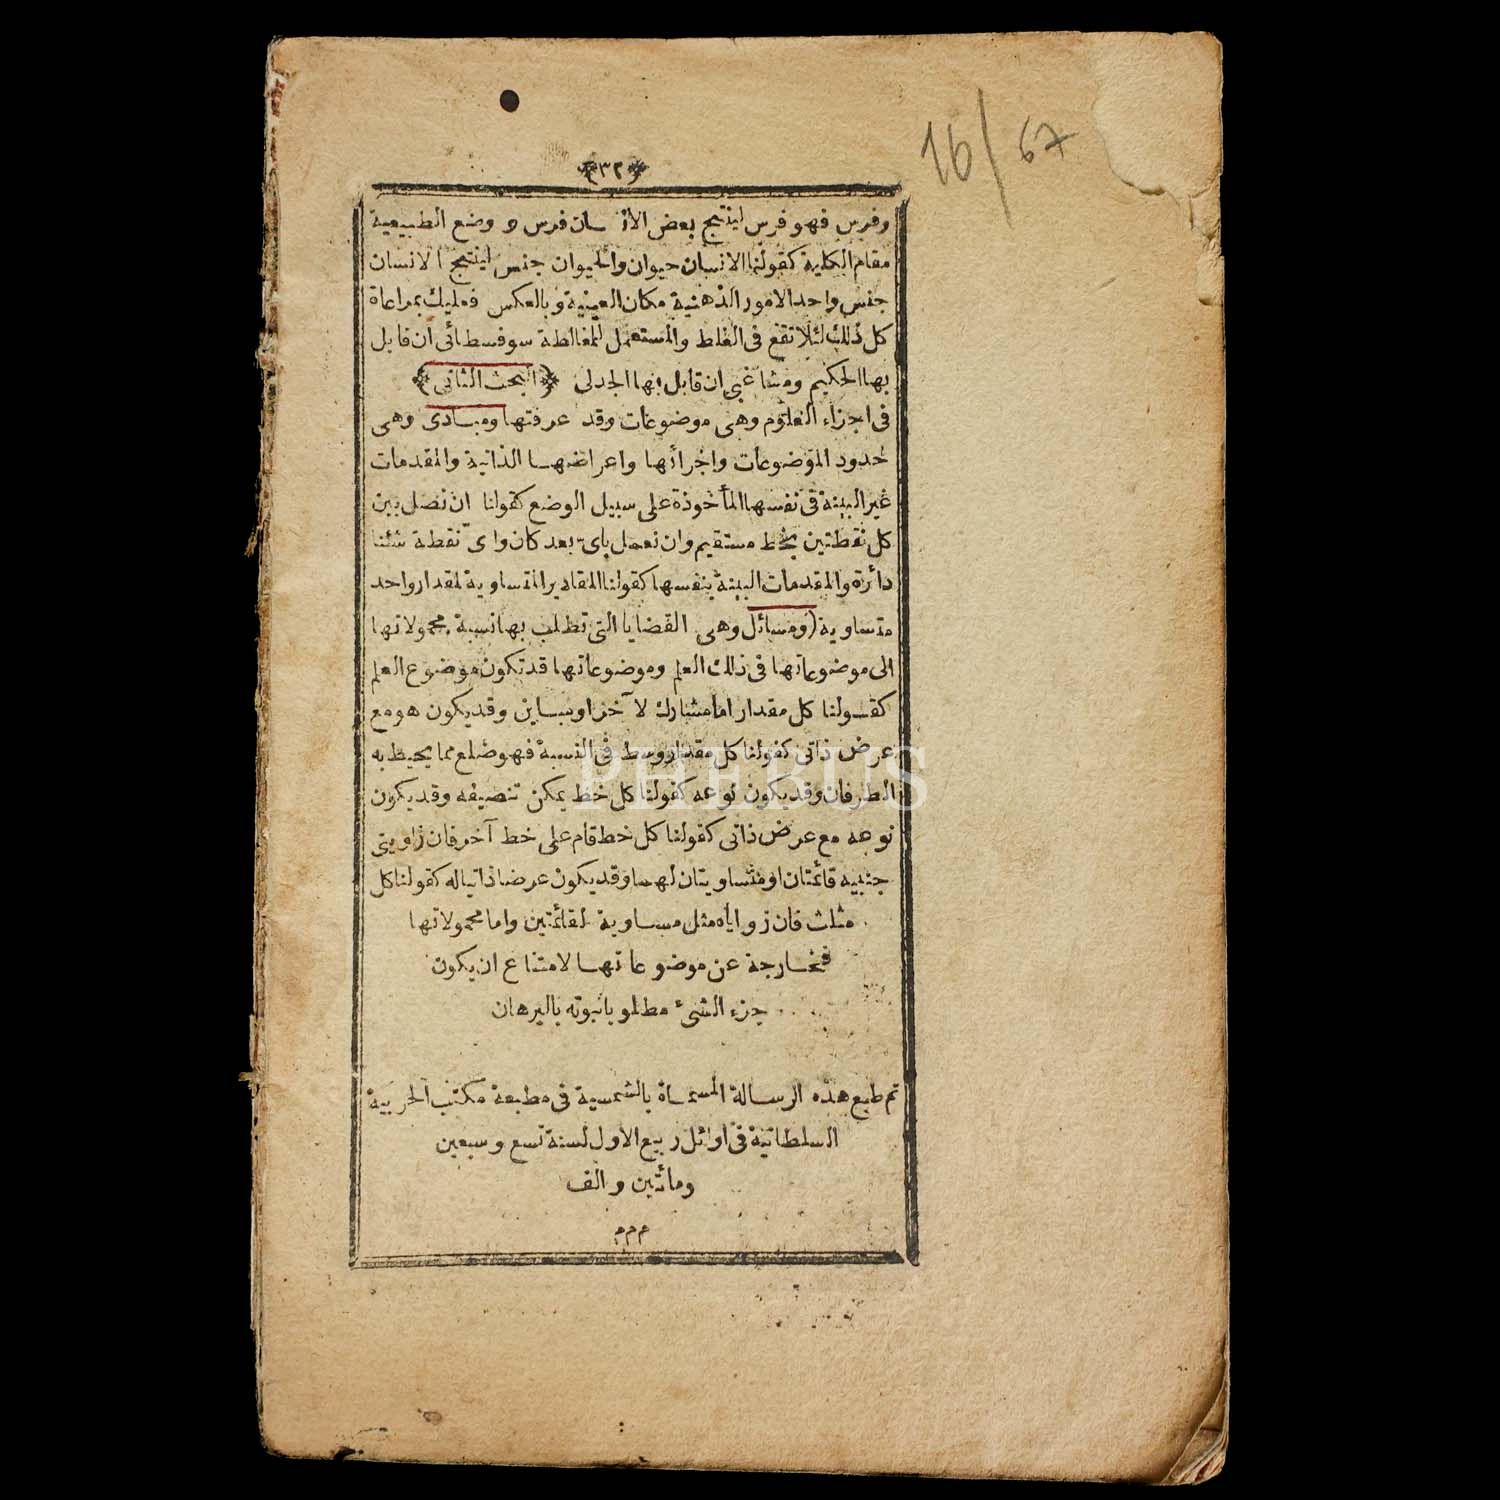 16/67
﴿٣٢﴾
وفرس فهو فرس لينتج بعض الانسان فرس و وضع الطبيعية
مقام الكلية كقولنا الانسان حيوان والحيوان جنس لينتج الانسان
جنس واحد الامور الذهنية مكان العينية وبالعكس فعليك بمراعاة
كل ذلك لئلا تقع فى الغلط والمستعمل للمغالطة سوفسطائى ان قابل
بها الحكيم ومشاغبى ان قابل بها الجدلى ﴿البحث الثانى﴾
فى اجزاء العلوم وهى موضوعات وقد عرفتها ومبادى وهى
حدود الموضوعات واجزائها واعراضهـا الذاتية والمقدمات
غير البينة فى نفسها المأخوذة على سبيل الوضع كقولنا ان نصل بين
كل نقطتين بخط مستقيم وان نعمل باىّ بعد كان واىّ نقطة شئنا
دائرة والمقدمات البينة بنفسها كقولنا المقادير المتساوية لمقدار واحد
متساوية (ومسائل وهى القضايا التى تطلب بها نسبة محمولاتها
الى موضوعاتها فى ذلك العلم وموضوعاتها قد تكون موضوع العلم
كقـولنا كل مقدار اما مشارك لآخر او مبـاين وقد يكون هو مع
عرض ذاتى كقولنا كل مقدار وسط فى النسبة فهو ضلع مما يحيط به
الطرفان وقد يكون نوعه كقولنا كل خط يمكن تنصيفه وقد يكون
نوعه مع عرض ذاتى كقولنا كل خط قام على خط آخر فان زاويتى
جنبيه قائمتان او متساويتان لهمـا وقد يكون عرضا ذاتيا له كقولنا كل
مثلث فان زواياه مثل مساوية لقائمتين واما محمولاتها
فخـارجة عن موضوعاتهـا لامتناع ان يكون
جزء الشئ مطلوبا ثبوته بالبرهان
تم طبع هذه الرسالة المسماة بالشمسية فى مطبعة مكتب الحربية
السلطانية فى اوائل ربيع الاول لسنة تسع وسبعين
ومأتين والف
م م م
PHEBUS